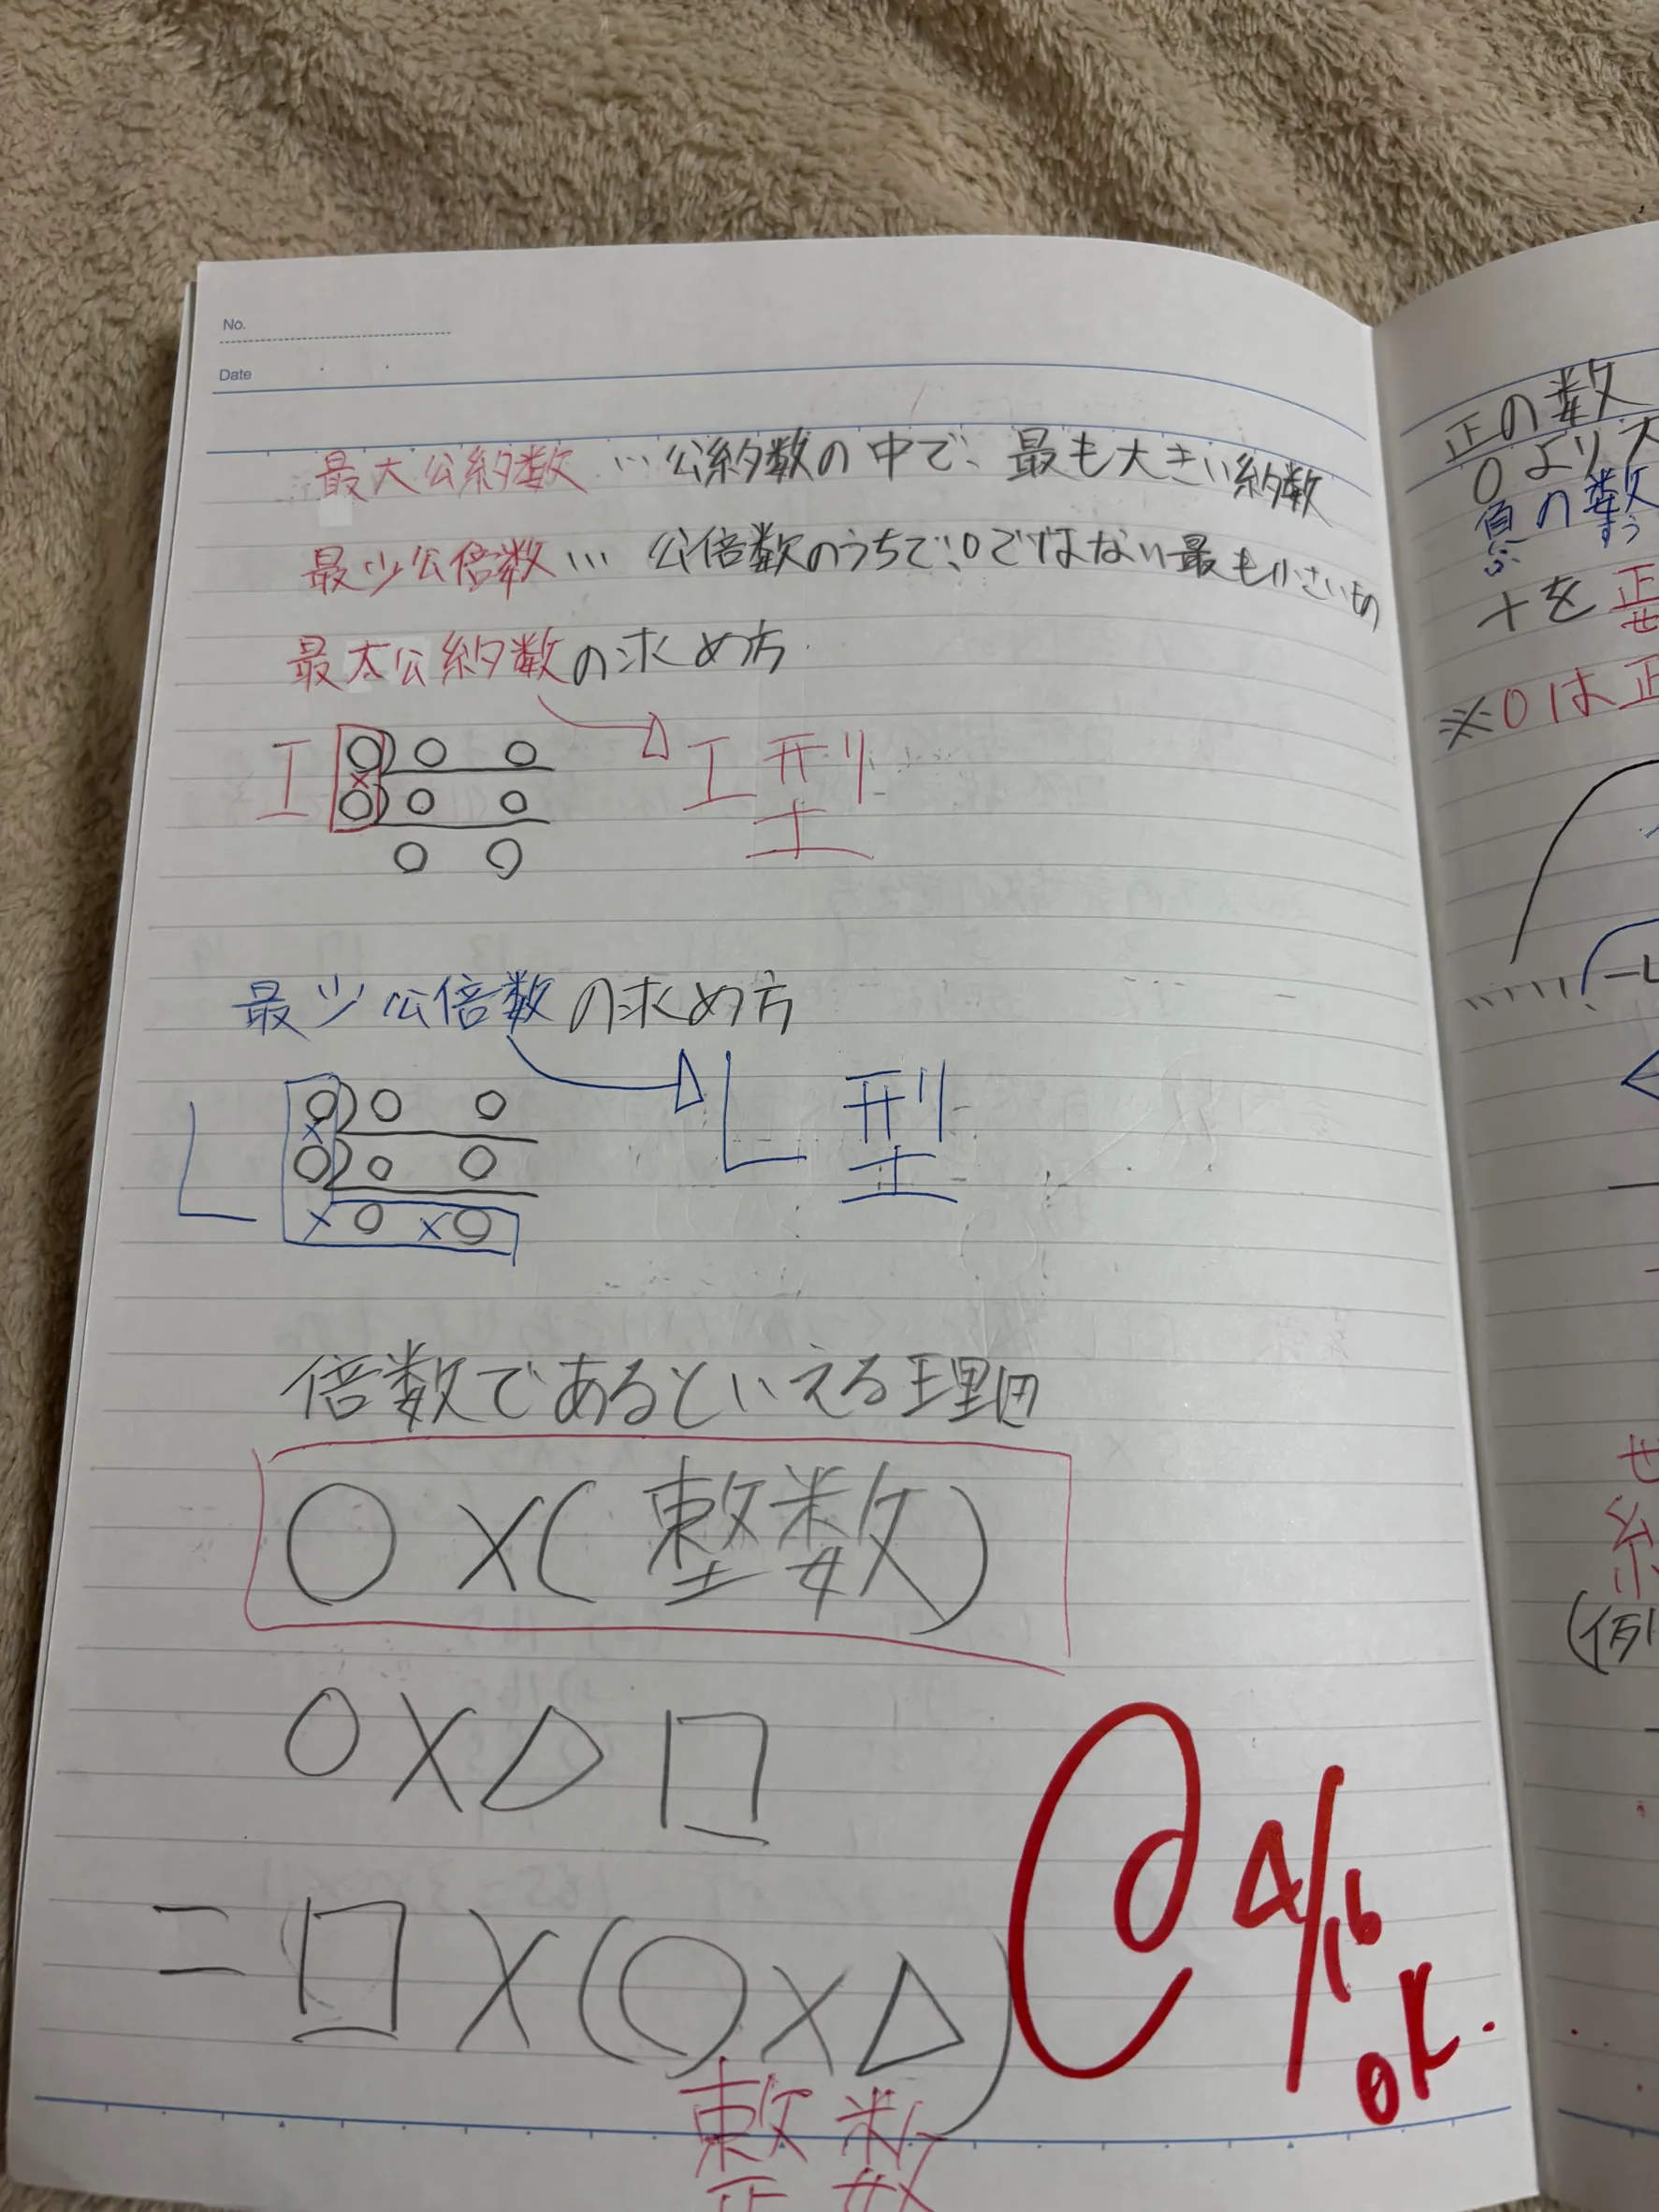 No.
Date
最大公約数 … 公約数の中で、最も大きい約数
最少公倍数 … 公倍数のうちで、0ではない最も小さいもの
最大公約数の求め方
I ○)○ ○ I型
×
○)○ ○
○ ○
最少公倍数の求め方
L ○)○ ○ L型
×
○)○ ○
×○ ×○
倍数であるといえる理由
○×(整数)
○×△ □
=□×(○×△)
整数
4/16
OK.
正の数
0より大
負の数
ふ すう
+を正
せ
※0は正
(例